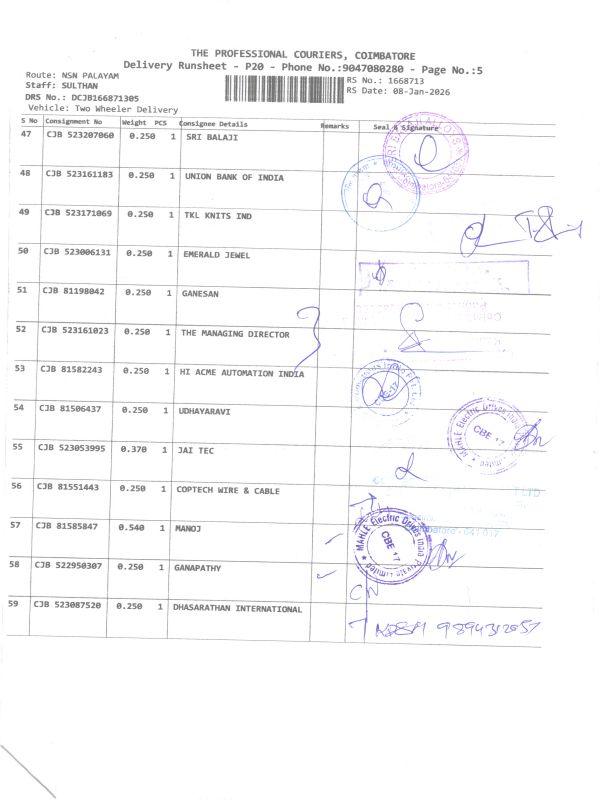 THE PROFESSIONAL COURIERS, COIMBATORE
Delivery Runsheet - P20 - Phone No.:9047080280 - Page No.:5
Route: NSN PALAYAM
Staff: SULTHAN
DRS No.: DCJB166871305
Vehicle: Two Wheeler Delivery
RS No.: 1668713
RS Date: 08-Jan-2026
S No Consignment No Weight PCS Consignee Details Remarks Seal & Signature
47 CJB 523207060 0.250 1 SRI BALAJI
48 CJB 523161183 0.250 1 UNION BANK OF INDIA
49 CJB 523171069 0.250 1 TKL KNITS IND
50 CJB 523006131 0.250 1 EMERALD JEWEL
51 CJB 81198042 0.250 1 GANESAN
52 CJB 523161023 0.250 1 THE MANAGING DIRECTOR
53 CJB 81582243 0.250 1 HI ACME AUTOMATION INDIA
54 CJB 81506437 0.250 1 UDHAYARAVI
MAHLE Electric Drives India Private Limited
CBE 17
55 CJB 523053995 0.370 1 JAI TEC
56 CJB 81551443 0.250 1 COPTECH WIRE & CABLE
57 CJB 81585847 0.540 1 MANOJ
MAHLE Electric Drives India Private Limited
CBE 17
58 CJB 522950307 0.250 1 GANAPATHY
59 CJB 523087520 0.250 1 DHASARATHAN INTERNATIONAL